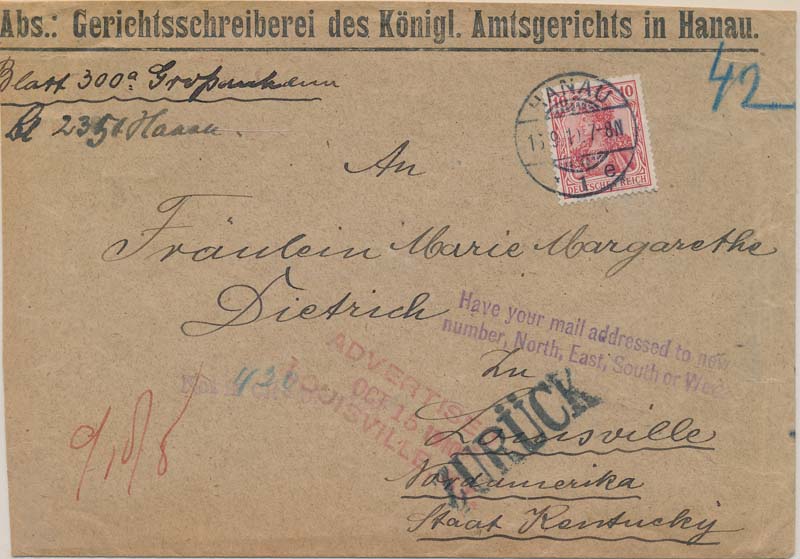 Abs.: Gerichtsschreiberei des Königl. Amtsgerichts in Hanau.
Blatt 300a
42
HANAU
7-8N
1 e
10
DEUTSCHES REICH
An
Fräulein Marie Margarethe
Dietrich
Have your mail addressed to new
number, North, East, South or West
ADVERTISED
OCT 15
LOUISVILLE
420
Zu
ZURÜCK
Louisville
Nordamerika
Staat Kentucky